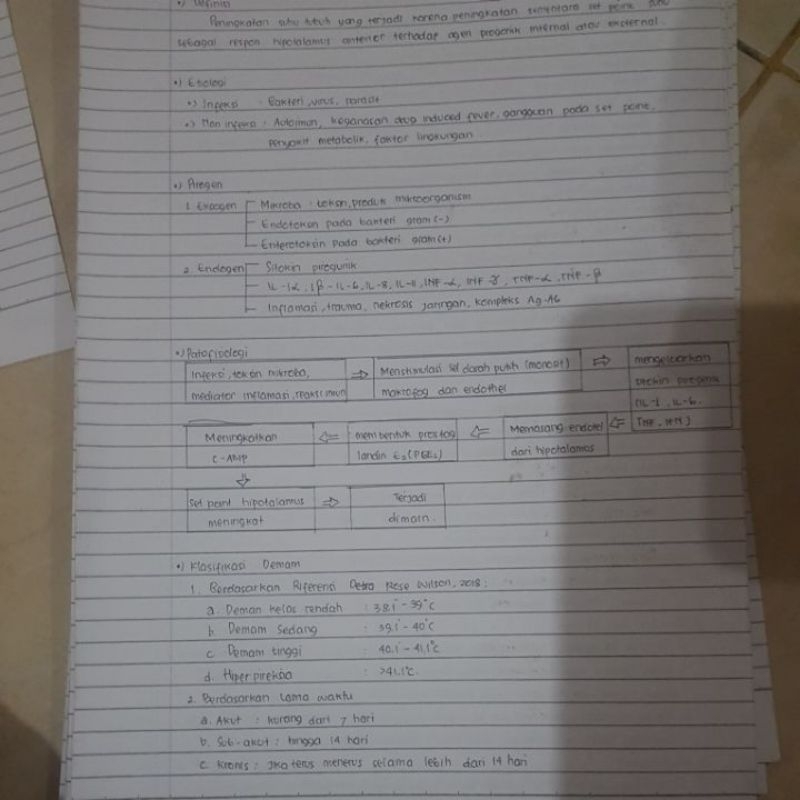 •) Definisi
Peningkatan suhu tubuh yang terjadi karena peningkatan sementara set point suhu
sebagai respon hipotalamus anterior terhadap agen pirogenik internal atau external.
•) Etiologi
•) Infeksi : Bakteri, virus, parasit
•) Non infeksi : Autoimun, keganasan drug induced fever, gangguan pada set point,
penyakit metabolik, faktor lingkungan
•) Piregen
1. Exogen Mikroba : toksin, produk mikroorganism
Endotoksin pada bakteri gram (-)
Enterotoksin pada bakteri gram (+)
2. Endogen Sitokin pirogenik
IL-1α, 1β - IL-6, IL-8, IL-11, INF-α, INF γ, TNF-α, TNF-β
Inflamasi, trauma, nekrosis jaringan, kompleks Ag-Ab
•) Patofisiologi
Infeksi, toksin mikroba,
mediator inflamasi, reaksi imun
⇒ Menstimulasi sel darah putih (monosit)
makrofag dan endothel
⇒ mengeluarkan
sitokin pirogenik
(IL-1, IL-6,
TNF, IFN)
⇐ Memasang endotel
dari hipotalamus
⇐ membentuk prostag
landin E2 (PGE2)
⇐ Meningkatkan
C-AMP
⇓
Set point hipotalamus
meningkat
⇒ Terjadi
dimam.
•) Klasifikasi Demam
1. Berdasarkan Riferensi Debra Rose Wilson, 2018:
a. Deman kelas rendah : 38.1° - 39°C
b. Demam Sedang : 39.1 - 40°C
c. Demam tinggi : 40.1 - 41.1°C
d. Hiper pireksia : >41.1°C.
2. Berdasarkan lama waktu
a. Akut : kurang dari 7 hari
b. Sub-akut : hingga 14 hari
c. Kronis : Jika terus menerus selama lebih dari 14 hari